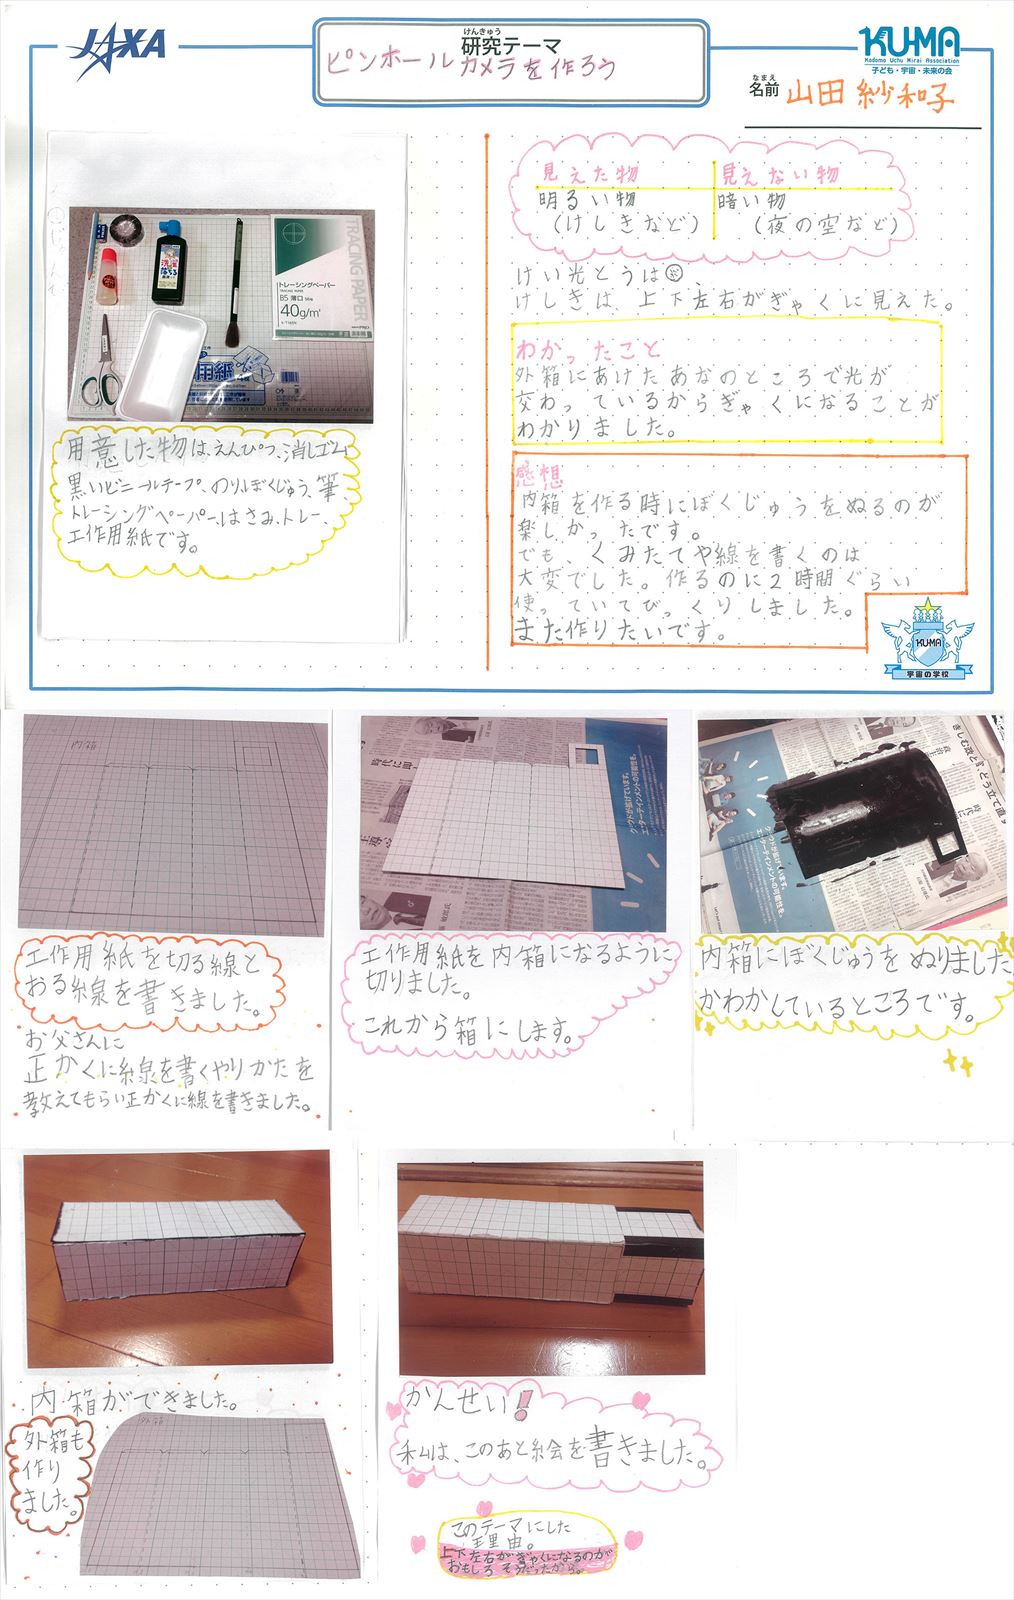 JAXA
けんきゅう
研究テーマ
ピンホールカメラを作ろう
KU-MA
Kodomo Uchu Mirai Association
子ども・宇宙・未来の会
なまえ
名前 山田 紗和子
トレーシングペーパー
B5 薄口
40g/m²
TRACING PAPER
洗濯で落ちる
用紙
用意した物は、えんぴつ、消しゴム
黒いビニールテープ、のり、ぼくじゅう、筆、
トレーシングペーパー、はさみ、トレー、
工作用紙です。
見えた物 見えない物
明るい物 暗い物
(けしきなど) (夜の空など)
けい光とうは
けしきは、上下左右がぎゃくに見えた。
わかったこと
外箱にあけたあなのところで光が
交わっているからぎゃくになることが
わかりました。
感想
内箱を作る時にぼくじゅうをぬるのが
楽しかったです。
でも、くみたてや線を書くのは
大変でした。作るのに2時間ぐらい
使っていてびっくりしました。
また作りたいです。
KU-MA
宇宙の学校
内箱
時代に即
クラウドが拡げています。
エンターテインメントの可能性を。
工作用紙を切る線と
おる線を書きました。
お父さんに
正かくに線を書くやりかたを
教えてもらい正かくに線を書きました。
工作用紙を内箱になるように
切りました。
これから箱にします。
内箱にぼくじゅうをぬりました
かわかしているところです。
内箱ができました。
外箱も
作り
ました。
外箱
かんせい!
私は、このあと絵を書きました。
このテーマにした
理由。
上下左右がぎゃくになるのが
おもしろそうだったから。